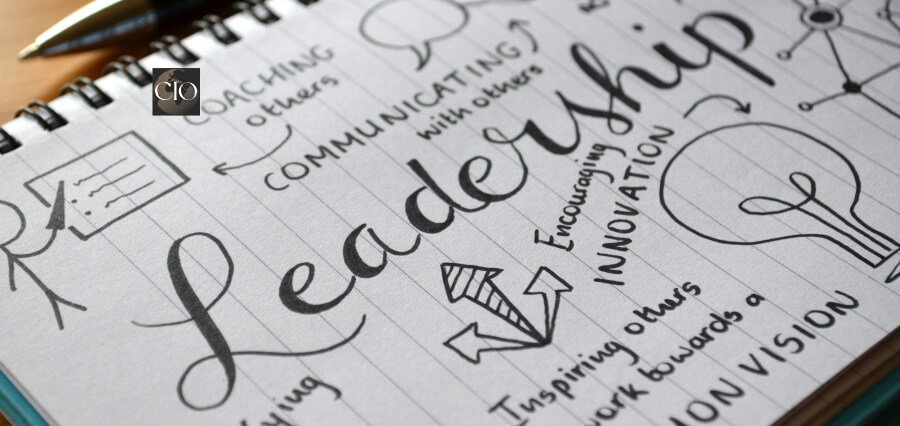 CIO
COACHING
others
COMMUNICATING
with others
Leadership
Encouraging
INNOVATION
Inspiring others
towards a
VISION